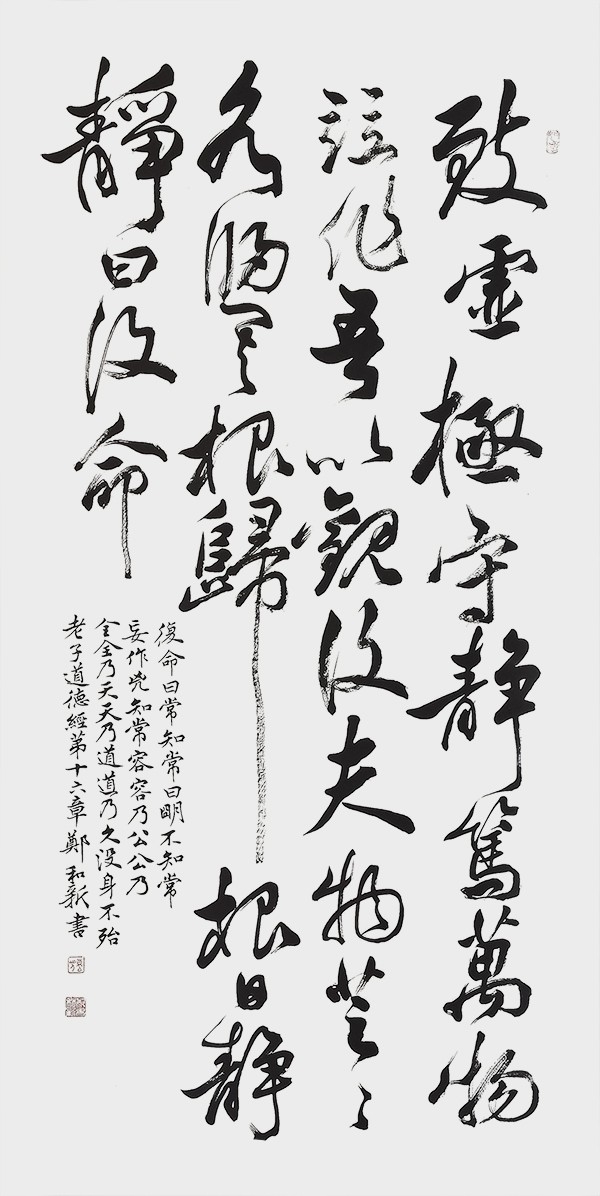 致虛極守静篤萬物
竝作吾以觀復夫物芸〻
各歸其根歸根曰静
靜曰復命
復命曰常知常曰眀不知常
妄作兇知常容容乃公公乃
全全乃天天乃道道乃久没身不殆
老子道德經第十六章鄭和新書